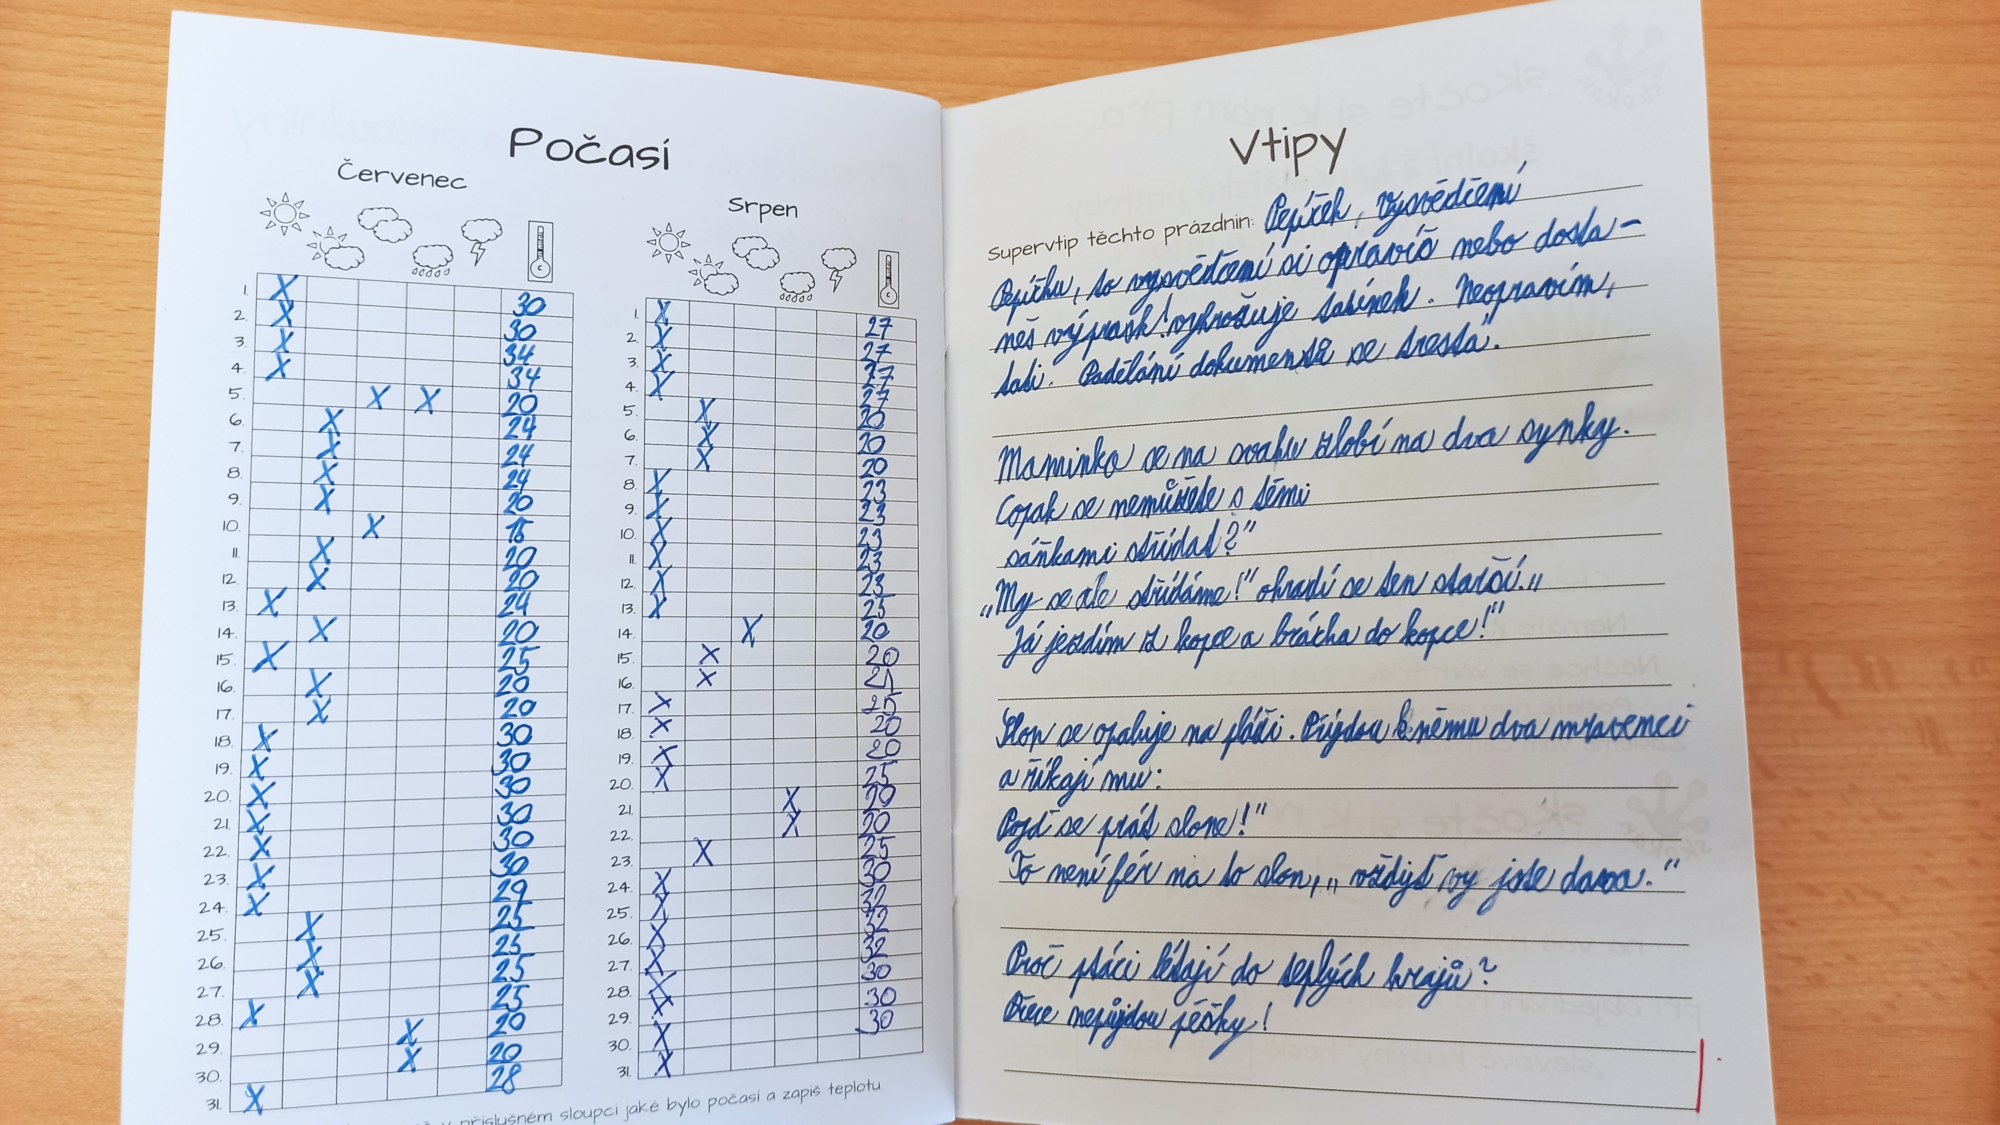 Počasí
Červenec
Srpen
1. X 30
2. X 30
3. X 34
4. X 34
5. X X 20
6. X 24
7. X 24
8. X 24
9. X 20
10. X
11. X 20
12. X 20
13. X 24
14. X 20
15. X 25
16. X 20
17. X 20
18. X 30
19. X 30
20. X 30
21. X 30
22. X 30
23. X 30
24. X 29
25. X 25
26. X 25
27. X 25
28. X 25
29. X 20
30. X 20
31. X 28
1. X 27
2. X 27
3. X 27
4. X 27
5. X 20
6. X 20
7. X 20
8. X 23
9. X 23
10. X 23
11. X 23
12. X 23
13. X 25
14. X 20
15. X 20
16. X
17. X 25
18. X 20
19. X 20
20. X 25
21. X 20
22. X 20
23. X 25
24. X 30
25. X 32
26. X 32
27. X 32
28. X 30
29. X 30
30. X 30
31. X
příslušném sloupci jaké bylo počasí a zapiš teplotu
Vtipy
Supervtip těchto prázdnin: Pepíček, vysvědčení
Pepíčku, to vysvědčení si opravíš nebo dosta-
neš výprask! vyhrožuje tatínek. Neopravím,
tati. Padělání dokumentů se trestá".
Maminka se na svahu zlobí na dva synky.
Copak se nemůžete s těmi
sáňkami střídat?"
„My se ale střídáme!" ohradí se ten starší.„
Já jezdím z kopce a brácha do kopce!"
Slon se opaluje na pláži. Příjdou k němu dva mravenci
a říkají mu:
Pojď se prát slone!"
To není fér na to slon,„ vždyť vy jste dava."
Proč ptáci létají do teplých krajů?
Přece nepůjdou pěšky!